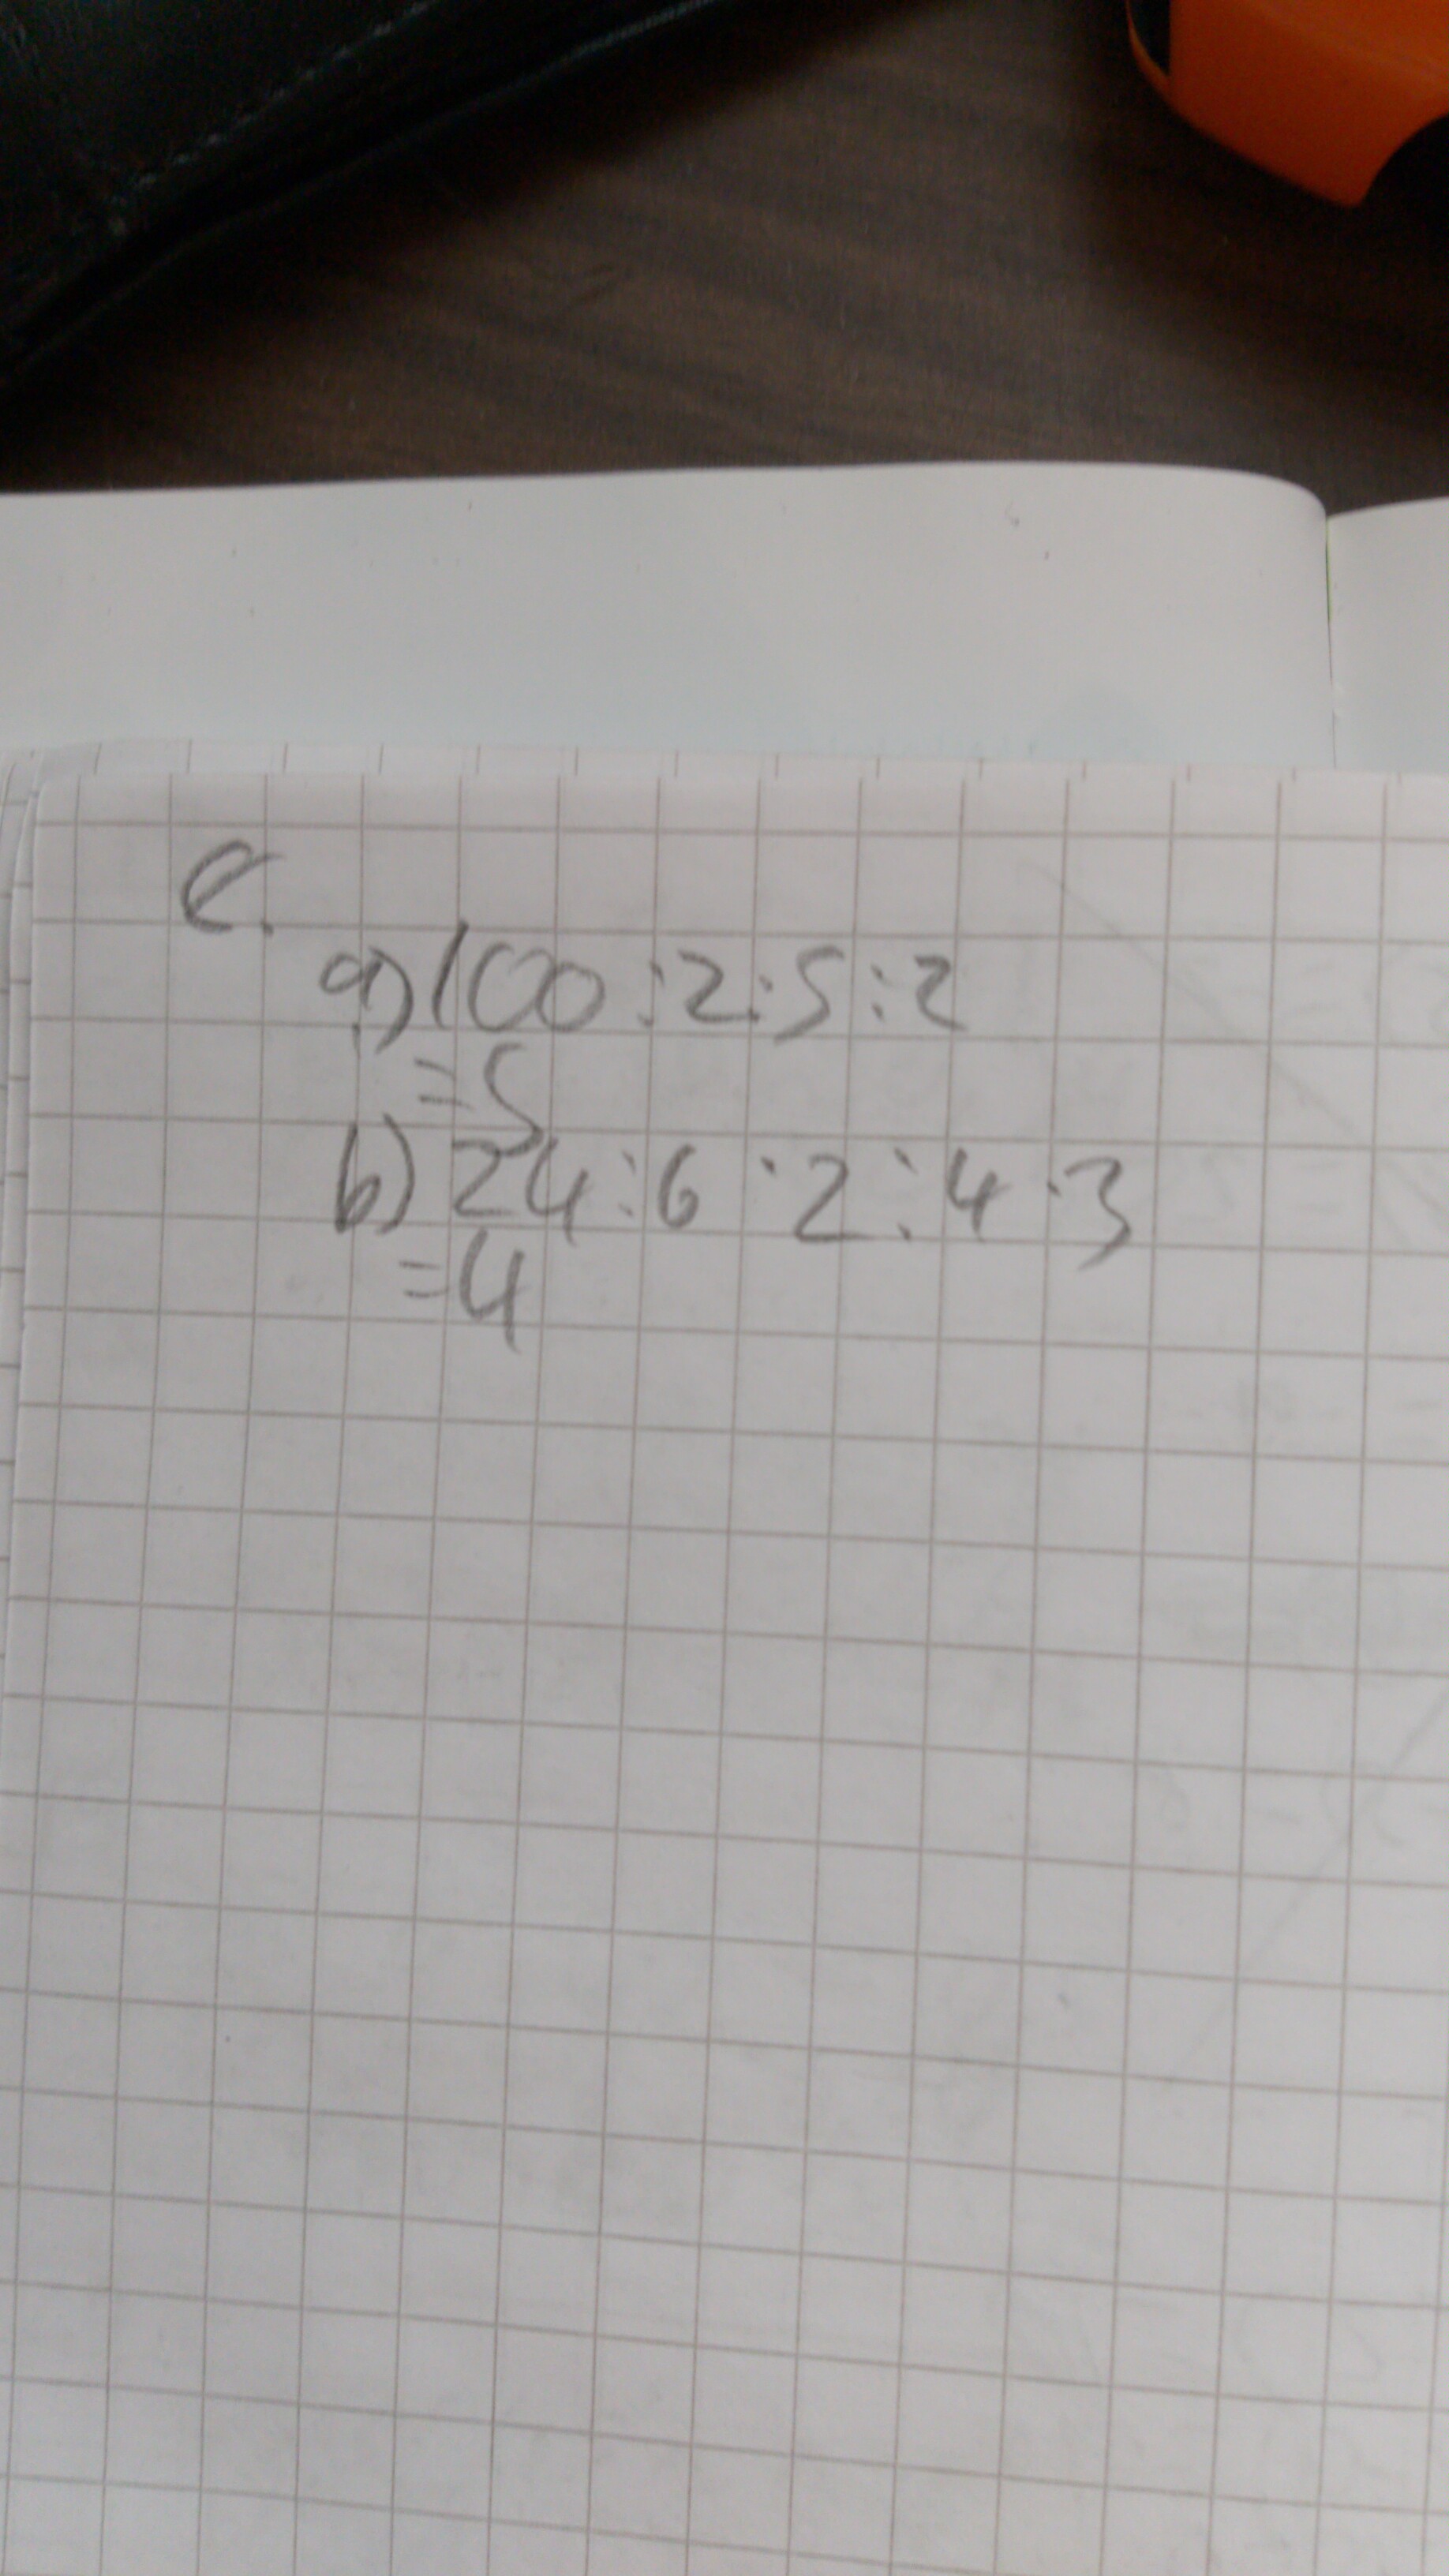 e.
a) 100:2:5:2
=5
b) 24:6·2:4·3
=4